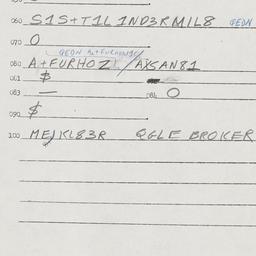 060 S1S+T1L 1ND3RMIL8 QEDN
070 O
QEDN A+FURHOW1C
080 A+FURHOZ / AXSAN81
081 $
083 — 084 O
090 $
100 MEJKL83R QGLE BROKER